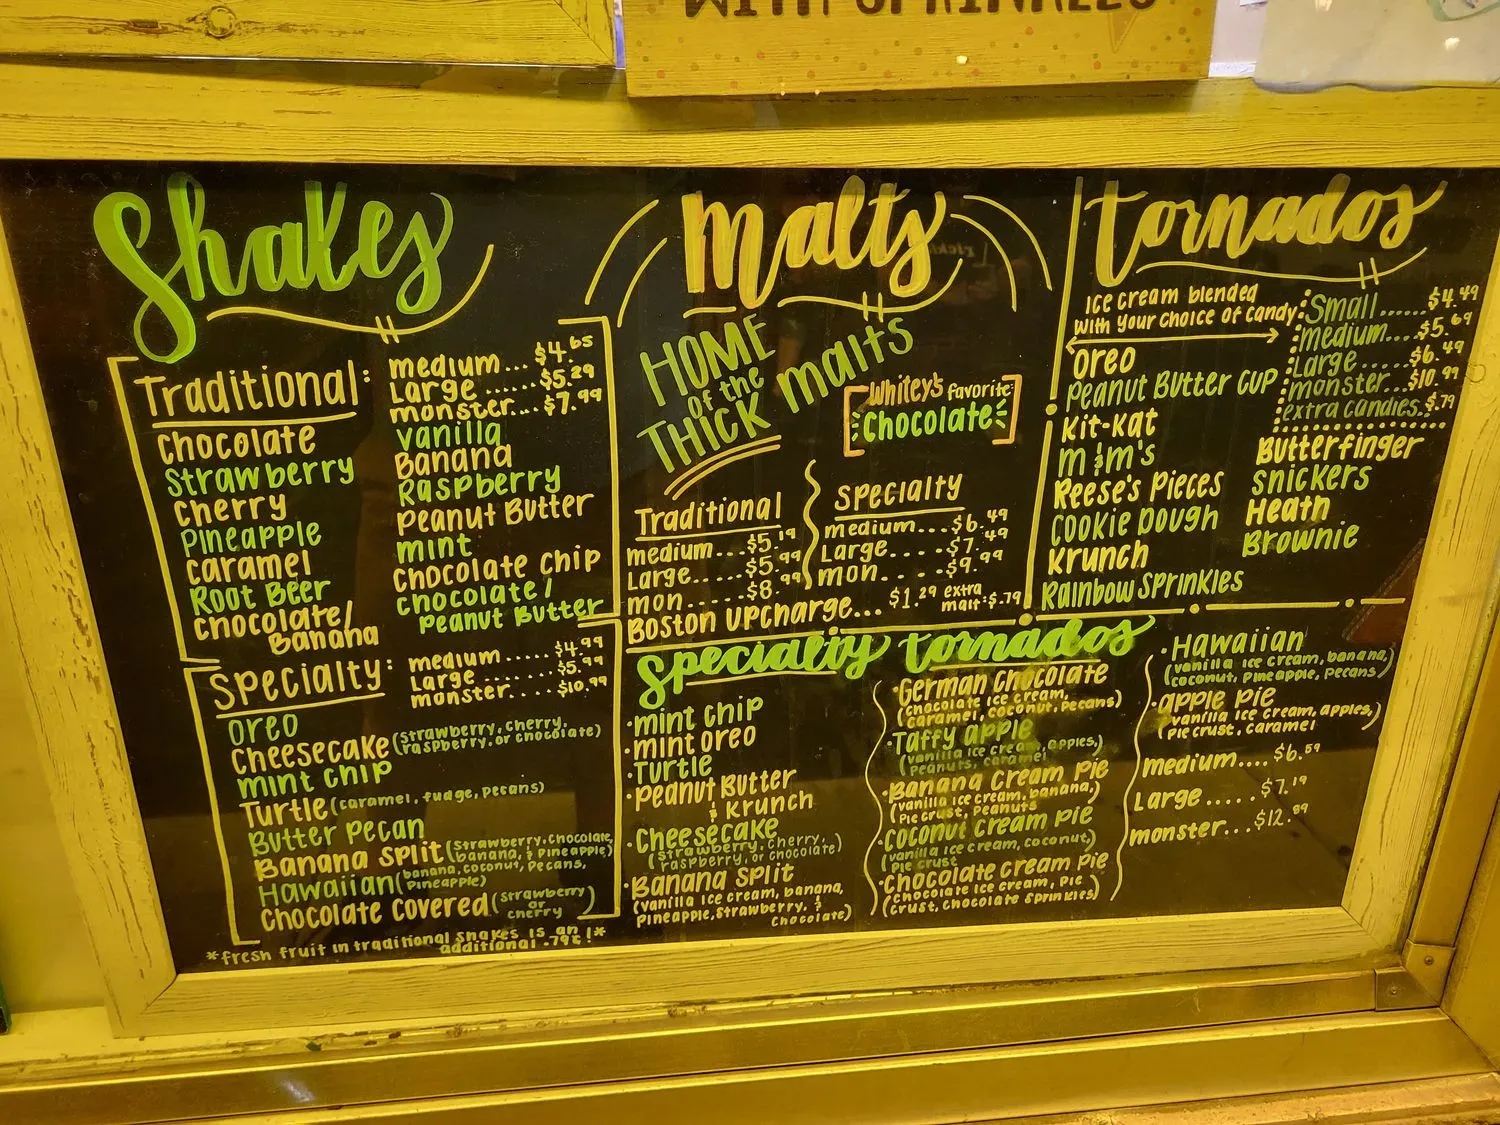 WITH SPRINKLES
Shakes
Traditional:
medium... $4.65
Large ...... $5.29
monster... $7.99
Chocolate
Strawberry
Cherry
Pineapple
Caramel
Root Beer
Chocolate/
Banana
Vanilla
Banana
Raspberry
Peanut Butter
mint
Chocolate Chip
Chocolate/
Peanut Butter
Specialty:
medium..... $4.99
Large ....... $5.99
monster.... $10.99
Oreo
Cheesecake (strawberry, cherry,
raspberry, or chocolate)
mint chip
Turtle (caramel, fudge, pecans)
Butter Pecan
Banana Split (strawberry, chocolate,
banana, & pineapple)
Hawaiian (banana, coconut, pecans,
pineapple)
Chocolate Covered (strawberry
or
cherry)
*fresh fruit in traditional shakes is an
additional .79¢!*
Malts
HOME
OF the
THICK malts
Whitey's favorite:
Chocolate
Traditional
medium... $5.19
Large..... $5.99
mon...... $8.99
Specialty
medium... $6.49
Large.... $7.49
mon..... $9.99
Boston upcharge... $1.29
extra
malt: $.79
Tornados
Ice cream blended
with your choice of candy:
Small...... $4.49
medium.... $5.69
Large..... $6.49
monster... $10.99
extra candies. $.79
Oreo
Peanut Butter Cup
Kit-Kat
m&m's
Reese's Pieces
Cookie Dough
Krunch
Rainbow Sprinkles
Butterfinger
Snickers
Heath
Brownie
Specialty Tornados
·mint chip
·mint oreo
·Turtle
·Peanut Butter
& Krunch
·Cheesecake
(strawberry, cherry,
raspberry, or chocolate)
·Banana Split
(vanilla ice cream, banana,
pineapple, strawberry, &
chocolate)
·German Chocolate
(chocolate ice cream,
caramel, coconut, pecans)
·Taffy apple
(vanilla ice cream, apples,
peanuts, caramel)
·Banana Cream Pie
(vanilla ice cream, banana,
pie crust, peanuts
·Coconut Cream Pie
(vanilla ice cream, coconut,
pie crust
·Chocolate Cream Pie
(chocolate ice cream, pie
crust, chocolate sprinkles)
·Hawaiian
(vanilla ice cream, banana,
coconut, pineapple, pecans)
·apple Pie
(vanilla ice cream, apples,
pie crust, caramel
medium.... $6.59
Large ..... $7.19
monster... $12.99